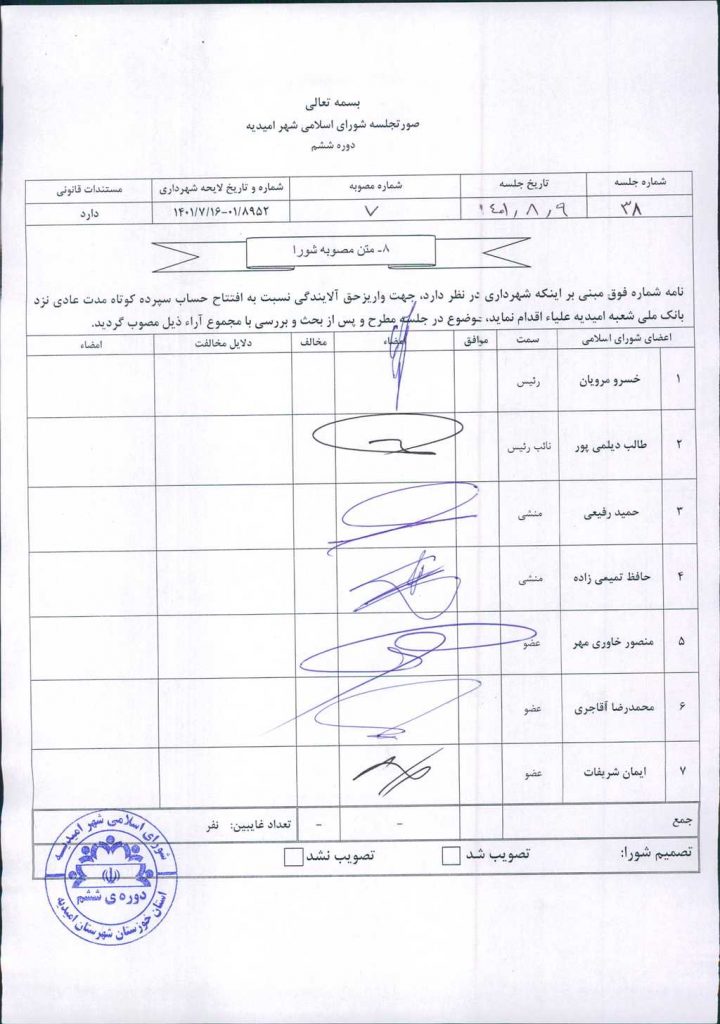 بسمه تعالی
صورتجلسه شورای اسلامی شهر امیدیه
دوره ششم
شماره جلسه تاریخ جلسه شماره مصوبه شماره و تاریخ لایحه شهرداری مستندات قانونی
۳۸ ۱۴۰۱٫۸٫۹ ۷ ۱۴۰۱/۷/۱۶-۰۱/۸۹۵۲ دارد
۸- متن مصوبه شورا
نامه شماره فوق مبنی بر اینکه شهرداری در نظر دارد، جهت واریزحق آلایندگی نسبت به افتتاح حساب سپرده کوتاه مدت عادی نزد
بانک ملی شعبه امیدیه علیاء اقدام نماید، موضوع در جلسه مطرح و پس از بحث و بررسی با مجموع آراء ذیل مصوب گردید.
اعضای شورای اسلامی سمت موافق امضاء مخالف دلایل مخالفت امضاء
۱ خسرو مرویان رئیس
۲ طالب دیلمی پور نائب رئیس
۳ حمید رفیعی منشی
۴ حافظ تمیمی زاده منشی
۵ منصور خاوری مهر عضو
۶ محمدرضا آقاجری عضو
۷ ایمان شریفات عضو
جمع - - تعداد غایبین: نفر
تصمیم شورا: تصویب شد تصویب نشد
شورای اسلامی شهر امیدیه
دوره ی ششم
استان خوزستان شهرستان امیدیه